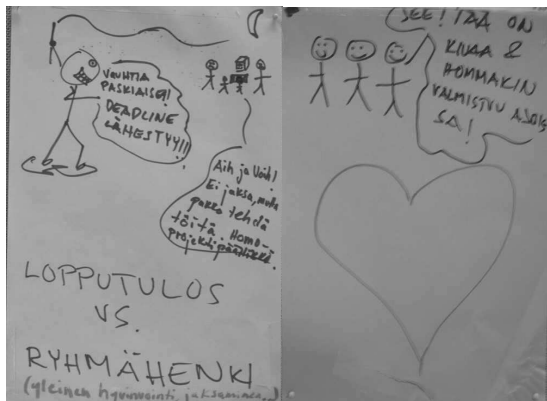 VAUHTIA
PASKIAISET!!
DEADLINE
LÄHESTYY!!!
Aih ja Voih!
Ei jaksa, mutta
pakko tehdä
töitä. Homo-
projektipäällikkö.
LOPPUTULOS
VS.
RYHMÄHENKI
(yleinen hyvinvointi, jaksaminen,
JEE! TÄÄ ON
KIVAA &
HOMMAKIN
VALMISTUU AJOIS
SA!